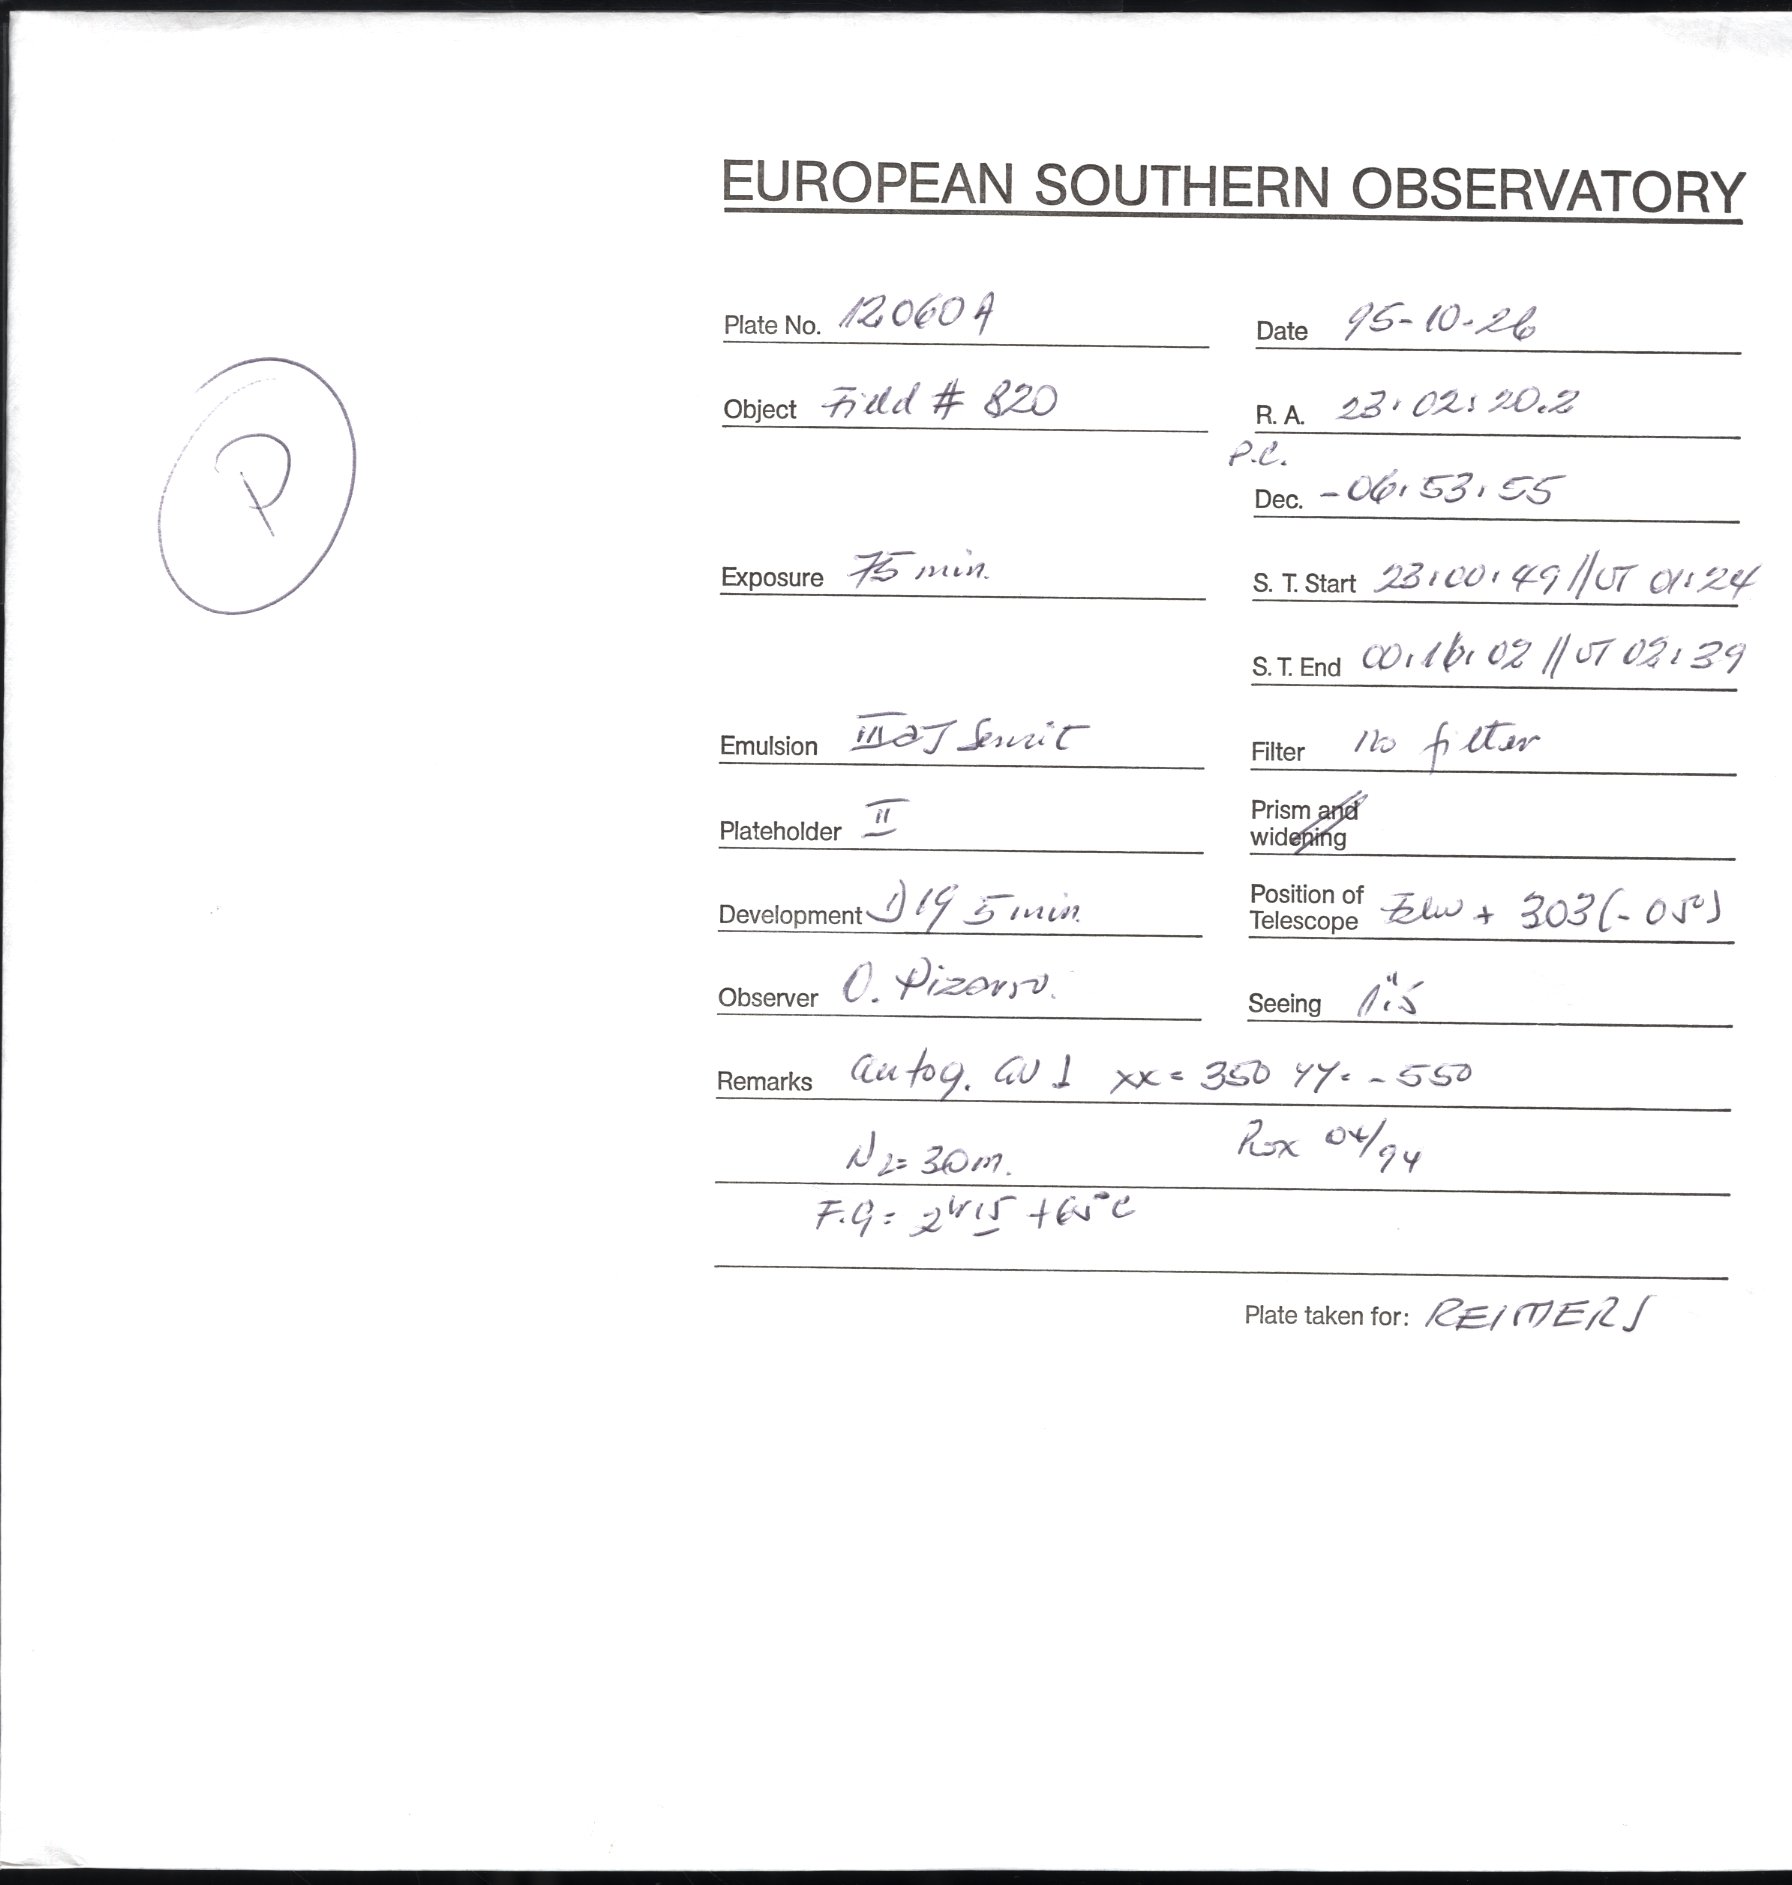 EUROPEAN SOUTHERN OBSERVATORY
Plate No. 12060A Date 95-10-26
Object Field # 820 R. A. 23:02:20.2
P
P.C.
Dec. -06:53:55
Exposure 75 min. S. T. Start 23:00:49 // UT 01:24
S. T. End 00:16:02 // UT 02:39
Emulsion IIIaJ Filter no filter
Plateholder II Prism and widening
Development D19 5 min. Position of Telescope + 303 (-05°)
Observer O. Pizarro. Seeing 1".5
Remarks autog. xx = 350 yy = -550
N2= 30m. 04/94
F.G = +65°C
Plate taken for: REIMERS